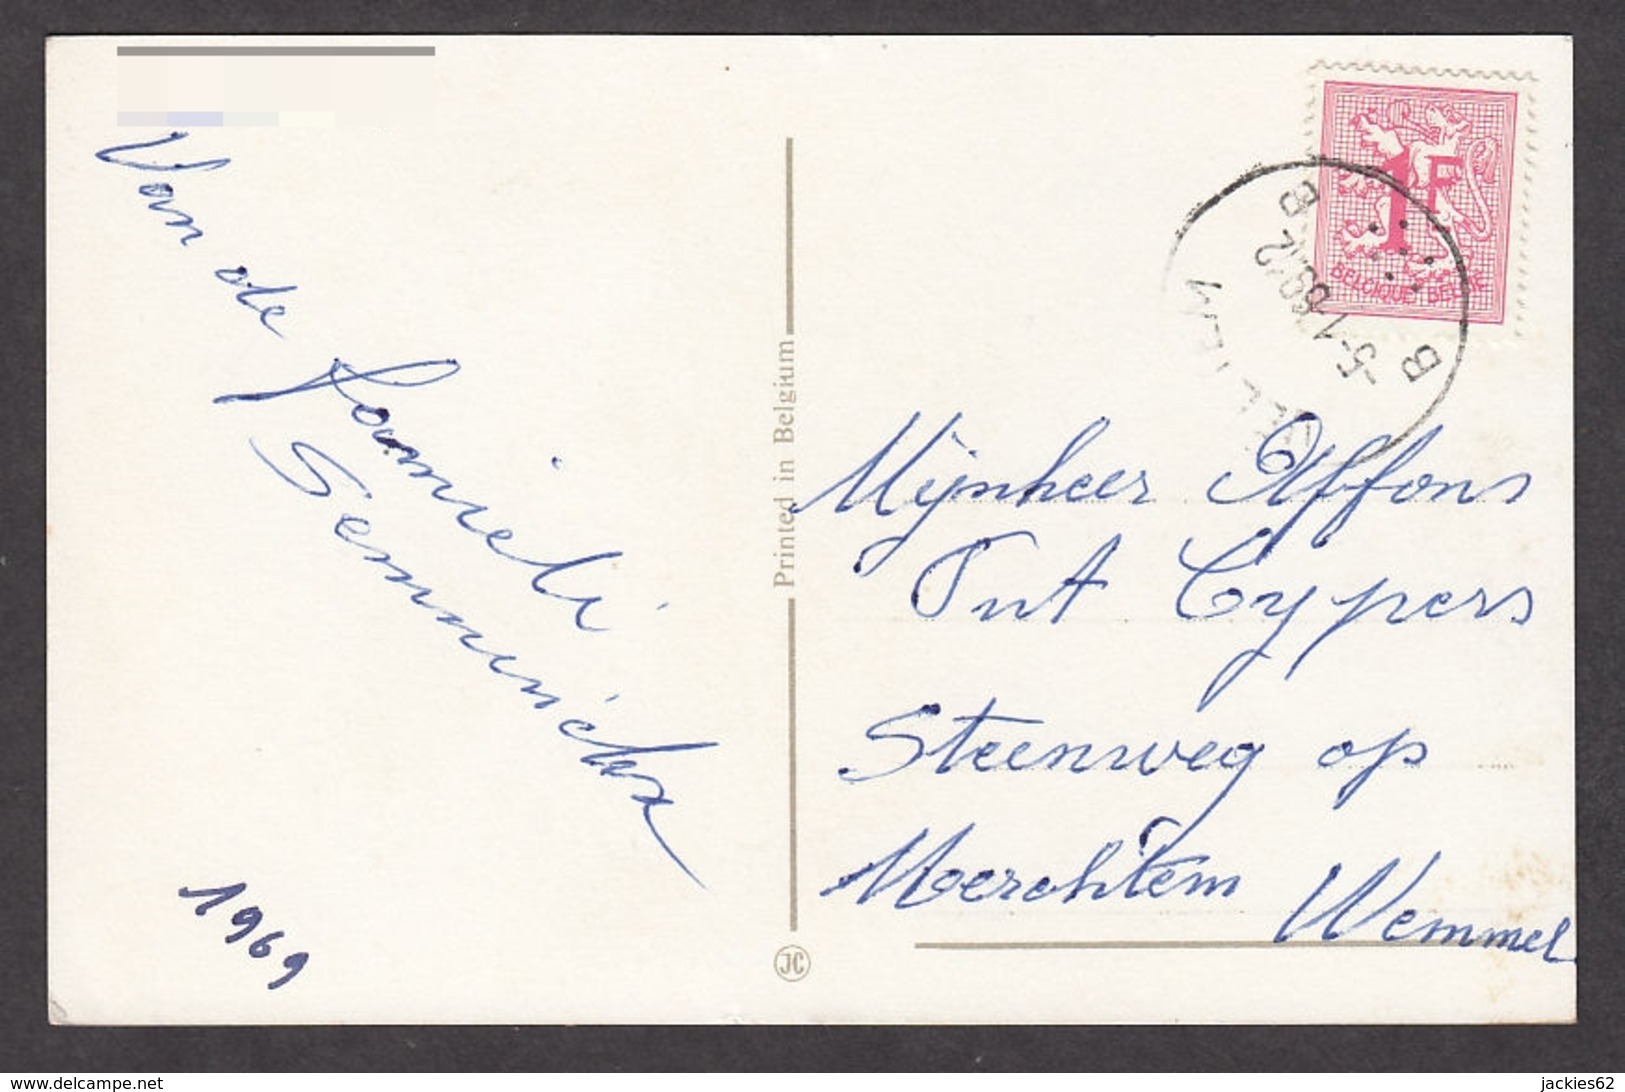 Van de
famieli
Semminckx
1969
Printed in Belgium
JC
1F
BELGIQUE BELGIE
B 5-1 69.12 B
Mijnheer Alfons
Put Cypers
Steenweg op
Merchtem Wemmel
www.delcampe.net
jackies62